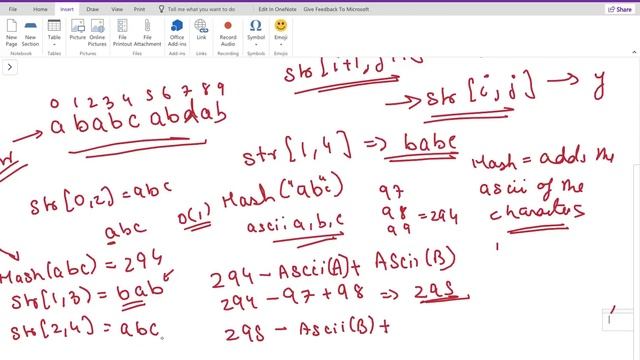 File Home Insert Draw History Review View Tell me what you want to do Edit In OneNote Give Feedback To Microsoft
New Page Table Picture Online Pictures File Printout File Attachment Office Add-ins Link Record Audio Symbol Emoji
Pages Tables Pictures Files Add-ins Links Recording Symbols Emojis
str[i,j] → y
0 1 2 3 4 5 6 7 8 9
→ a b a b c a b d a b
str[1,4] => babc
Hash = adds the
ascii of the
characters
str[0,2] = abc
abc
O(1)
Hash("abc")
ascii a,b,c
97
98 = 294
99
Hash(abc) = 294
294 - Ascii(A) + Ascii(B)
str(1,3) = bab
294 - 97 + 98 => 295
str[2,4] = abc
295 - Ascii(B) +